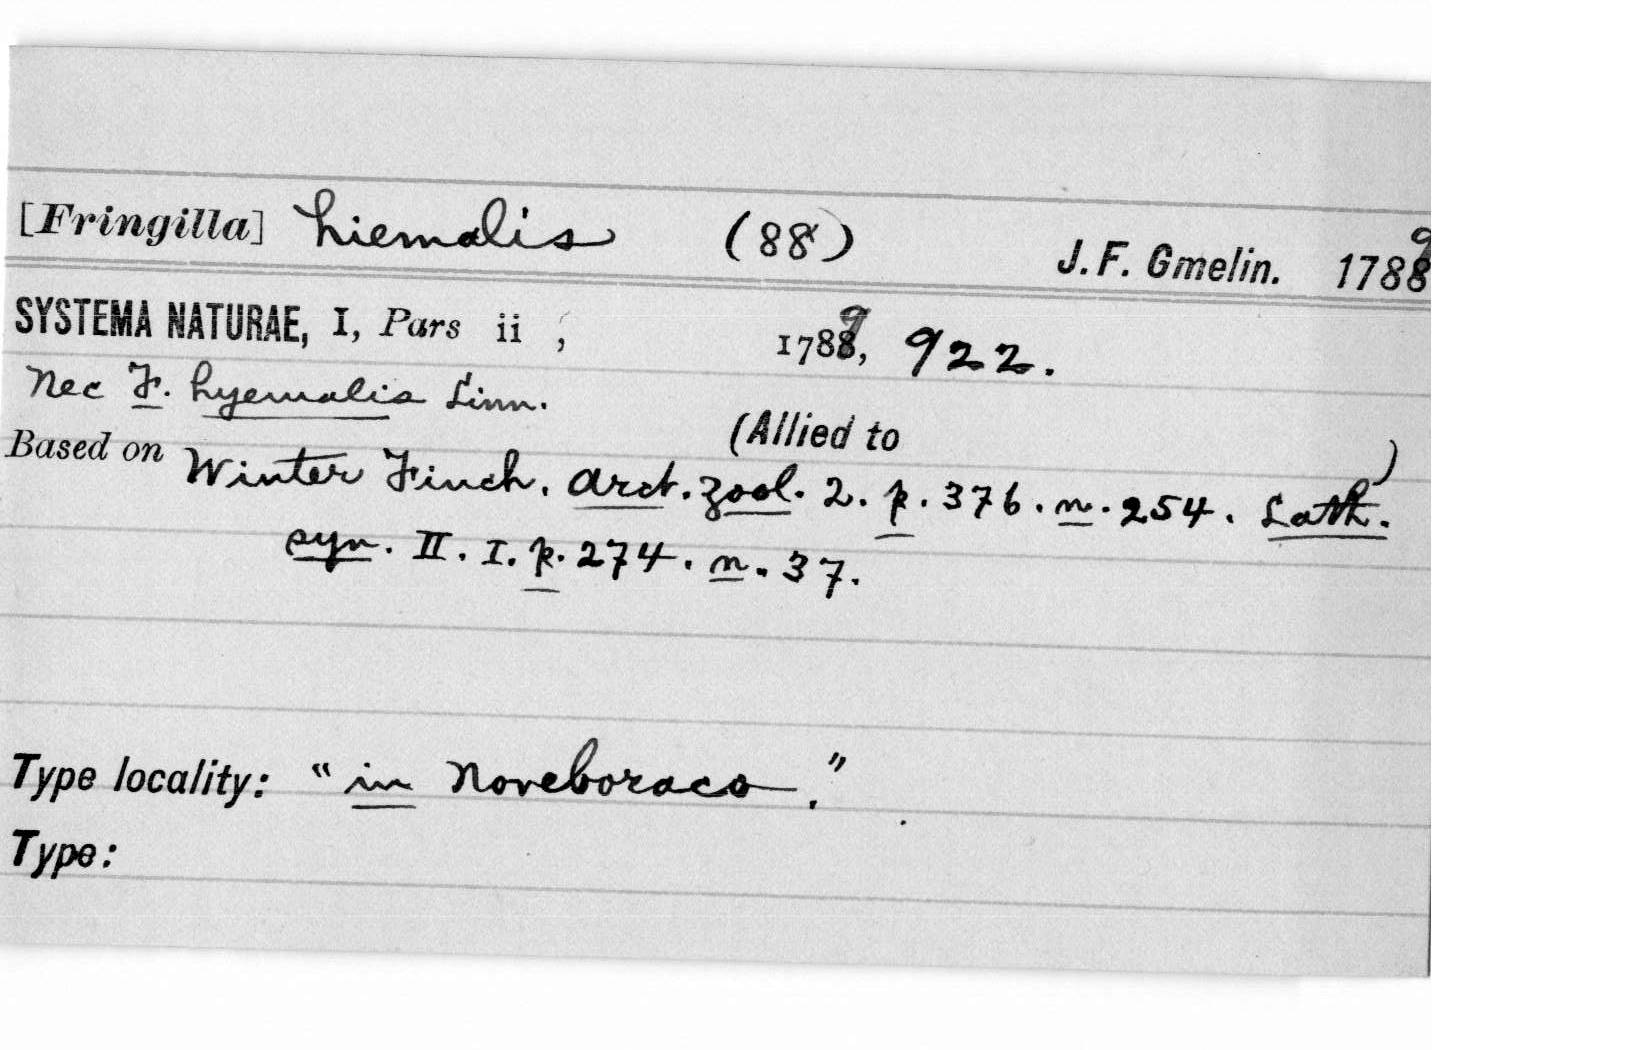 [Fringilla] hiemalis (88) J. F. Gmelin. 1789
SYSTEMA NATURAE, I, Pars ii , 1789, 922.
Nec F. hyemalis Linn.
(Allied to )
Based on Winter Finch. Arct. Zool. 2. p. 376. n. 254. Lath.
syn. II. I. p. 274. n. 37.
Type locality: "in Noveboraco."
Type: